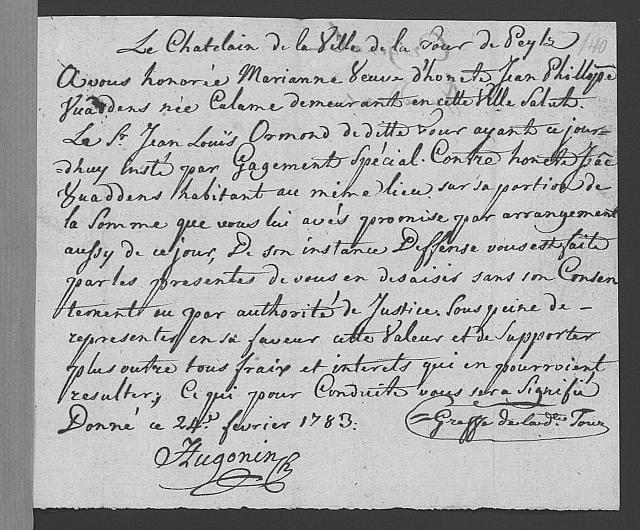 140
Le Chatelain de la Ville de la Tour de Peylz
A vous honorée Marianne Veuve d'honete Jean Phillippe
Vuaddens née Calame demeurant en cette Ville Salut.
Le Sr. Jean Louïs Ormond de ditte Tour ayant ce jour-
=dhuy insté par Gagement Spécial. Contre honete
Vuaddens habitant au même lieu sur sa portion de
la Somme que vous lui avés promise par arrangement
aussy de ce jour, De son instance Deffense vous est faite
par les presentes de vous en desaisir sans son Consen
tement ou par authorité de Justice. Sous peine de-
representer en sa faveur cette Valeur et de Supporter
plus outre tous fraix et interets qui en pourroient
resulter; Ce qui pour Conduite vous sera Signifié
Donné ce 24e. fevrier 1783.
Greffe de lad. Tour
Hugonin